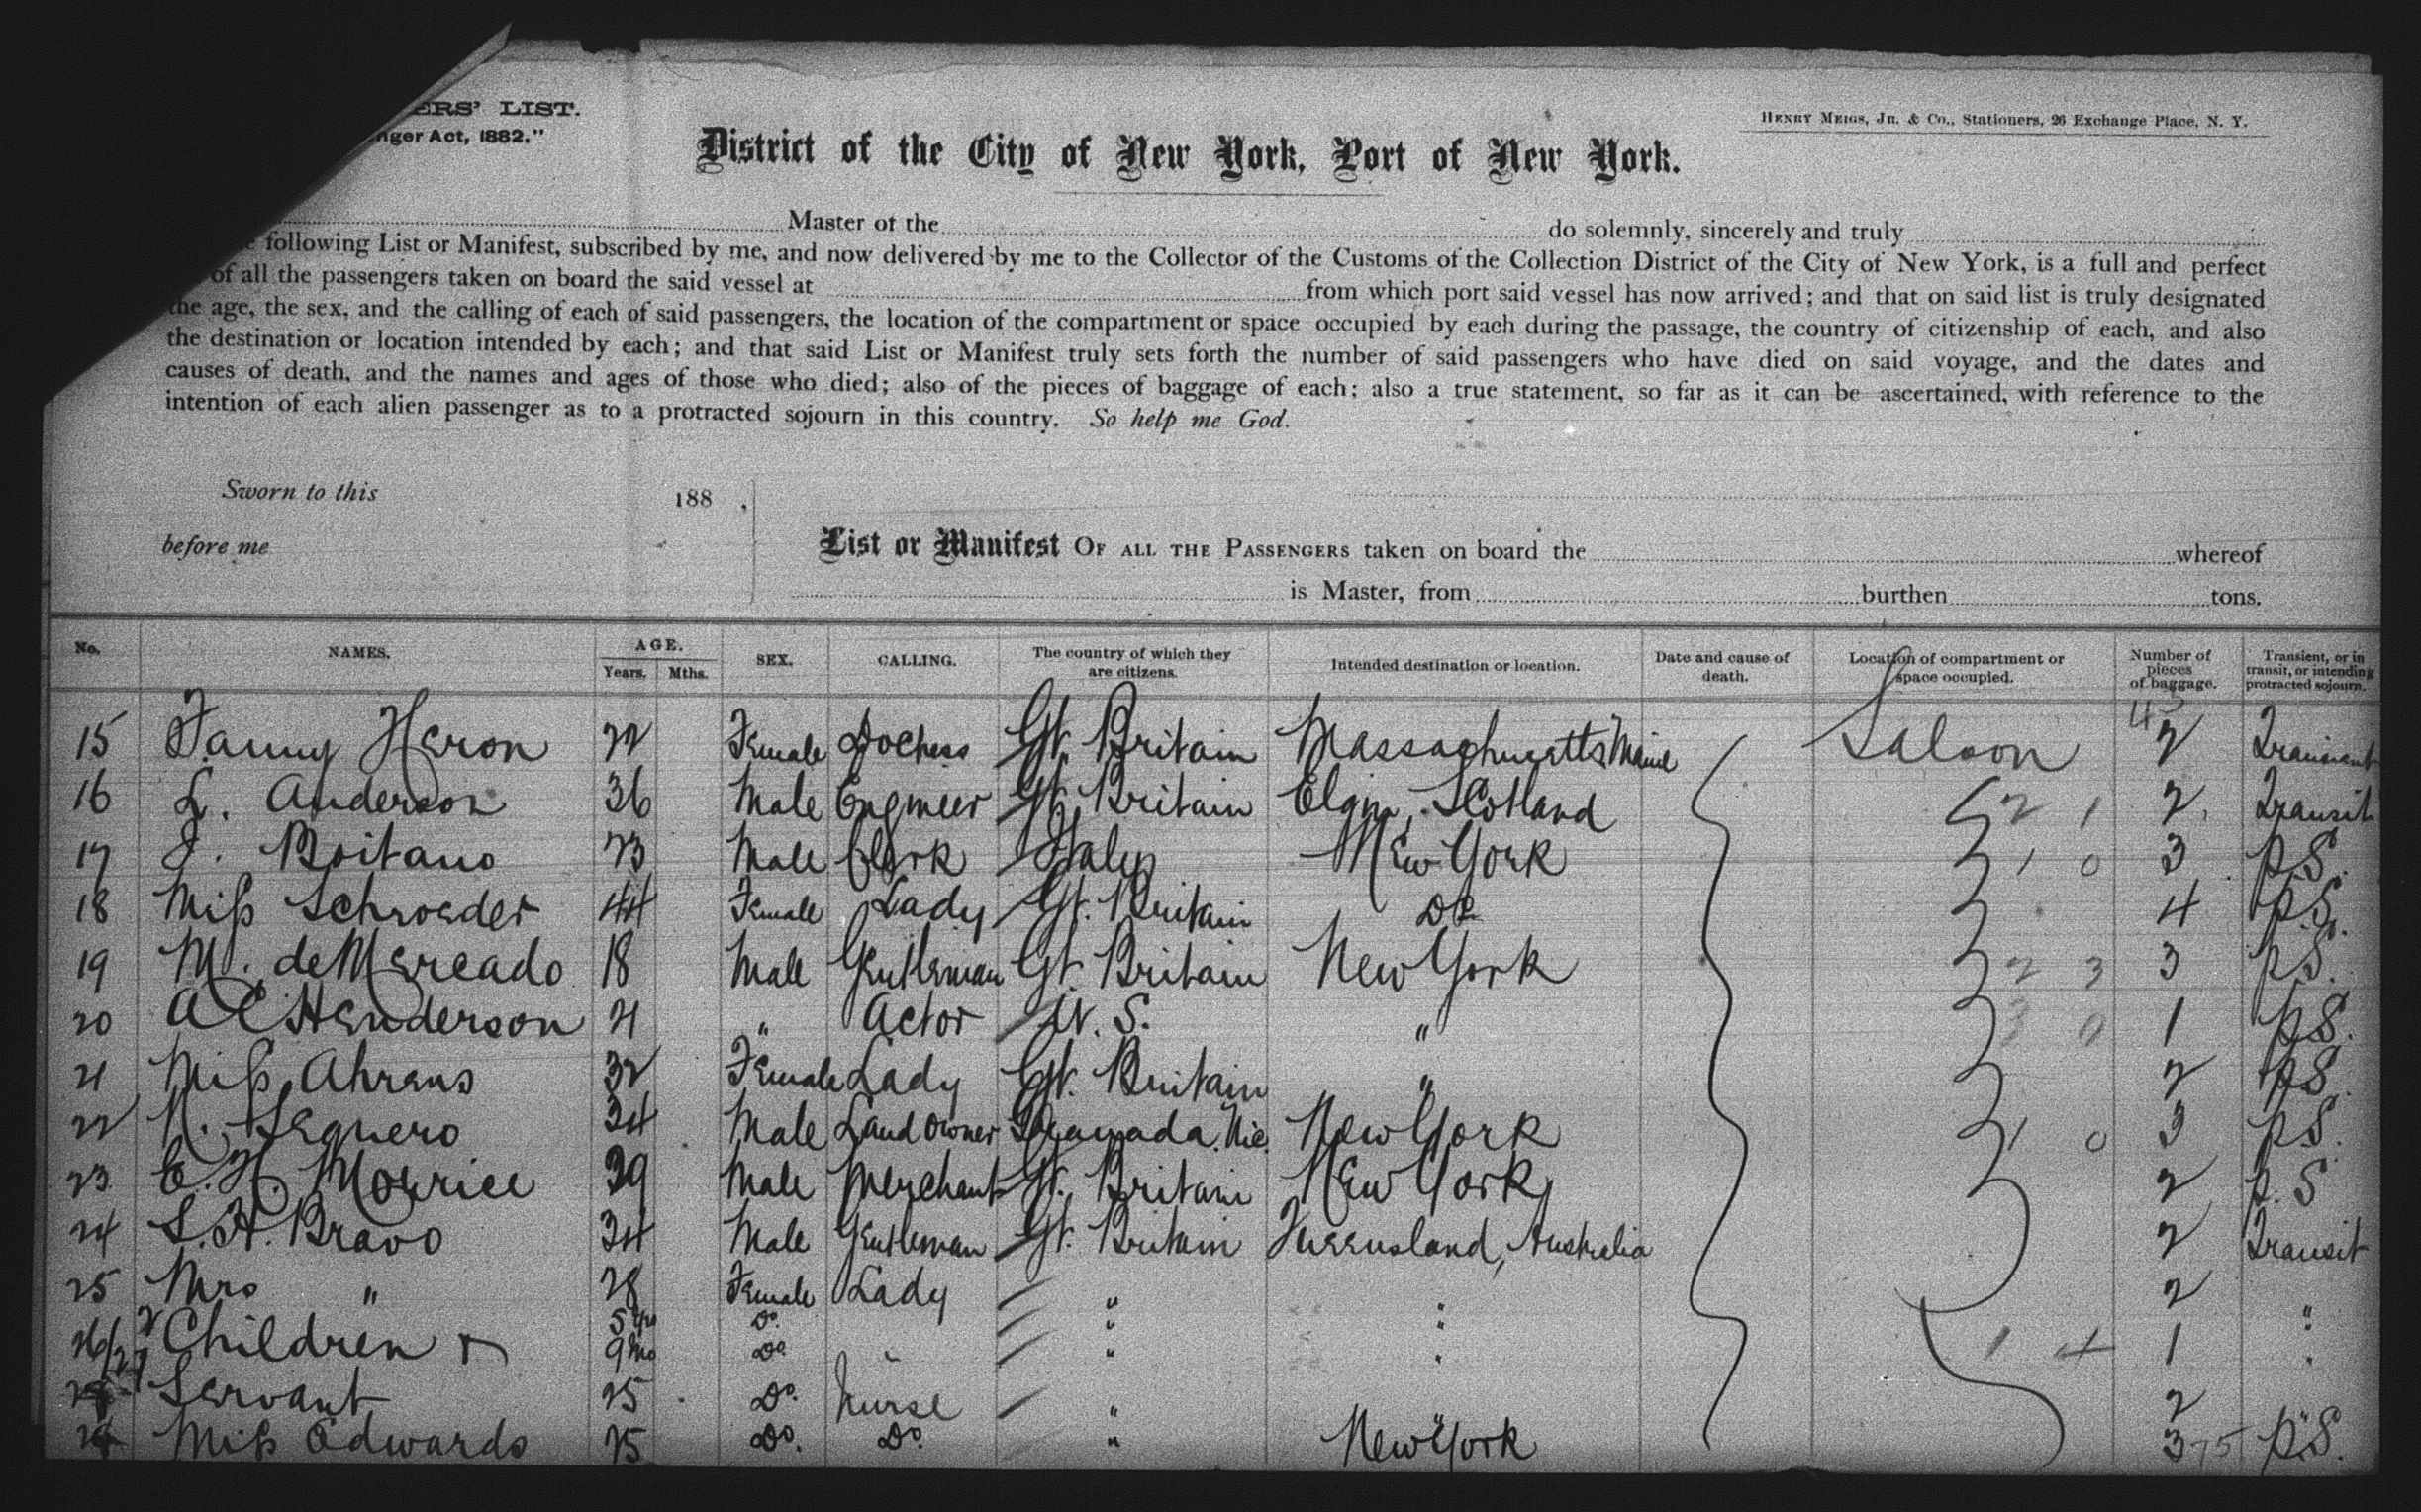 ERS' LIST.
nger Act, 1882."
HENRY MEIGS, JR. & CO., Stationers, 26 Exchange Place, N. Y.
District of the City of New York, Port of New York.
Master of the do solemnly, sincerely and truly
following List or Manifest, subscribed by me, and now delivered by me to the Collector of the Customs of the Collection District of the City of New York, is a full and perfect
of all the passengers taken on board the said vessel at from which port said vessel has now arrived; and that on said list is truly designated
the age, the sex, and the calling of each of said passengers, the location of the compartment or space occupied by each during the passage, the country of citizenship of each, and also
the destination or location intended by each; and that said List or Manifest truly sets forth the number of said passengers who have died on said voyage, and the dates and
causes of death, and the names and ages of those who died; also of the pieces of baggage of each; also a true statement, so far as it can be ascertained, with reference to the
intention of each alien passenger as to a protracted sojourn in this country. So help me God.
Sworn to this 188 ,
before me
List or Manifest OF ALL THE PASSENGERS taken on board the whereof
is Master, from burthen tons.
No. NAMES. AGE. Years. Mths. SEX. CALLING. The country of which they are citizens. Intended destination or location. Date and cause of death. Location of compartment or space occupied. Number of pieces of baggage. Transient, or in transit, or intending protracted sojourn.
15 Fanny Heron 22 Female Gt. Britain Massachusetts Maine Saloon 2 Transient
16 L. Anderson 36 Male Engineer Gt. Britain Elgin, Scotland 2 1 2 Transit
17 J. Boitano 23 Male Clerk Italy New York 1 0 3 P.S.
18 Miss Schroeder 44 Female Lady Gt. Britain Do 4 P.S.
19 M. deMercado 18 Male Gentleman Gt. Britain New York 2 3 3 P.S.
20 A C Henderson 21 " Actor U. S. " 3 0 1 P.S.
21 Miss Ahrens 32 Female Lady Gt. Britain " 2 P.S.
22 N. Sequero 34 Male Land owner Granada. Nic. New York 1 0 3 P.S.
23 E. H. Morrice 39 Male Merchant Gt. Britain New York 2 P.S
24 S. H. Bravo 34 Male Gentleman Gt. Britain Queensland, Australia 2 Transit
25 Mrs " 28 Female Lady " " 2 "
26/27 2 Children & 5 yrs Do " "
9 Mo Do " " 1 4 1 "
Servant 25 Do. Nurse " " 2 "
Miss Edwards 25 Do. Do. " New York 3 75 P.S.